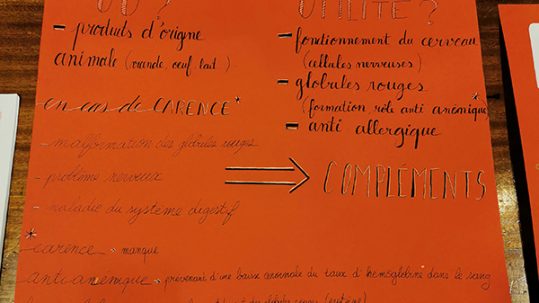 OÙ ?
- produits d'origine
animale (viande, oeuf, lait..)
UTILITÉ ?
- fonctionnement du cerveau
(cellules nerveuses)
- globules rouges
(formation rôle anti anémique*
- anti allergique
en cas de CARENCE*
- malformation des globules rouges
- problème nerveux
- maladie du système digestif
⟹ COMPLÉMENTS
*carence - manque
antianémique - prévenant d'une baisse anormale du taux d'hémoglobine dans le sang